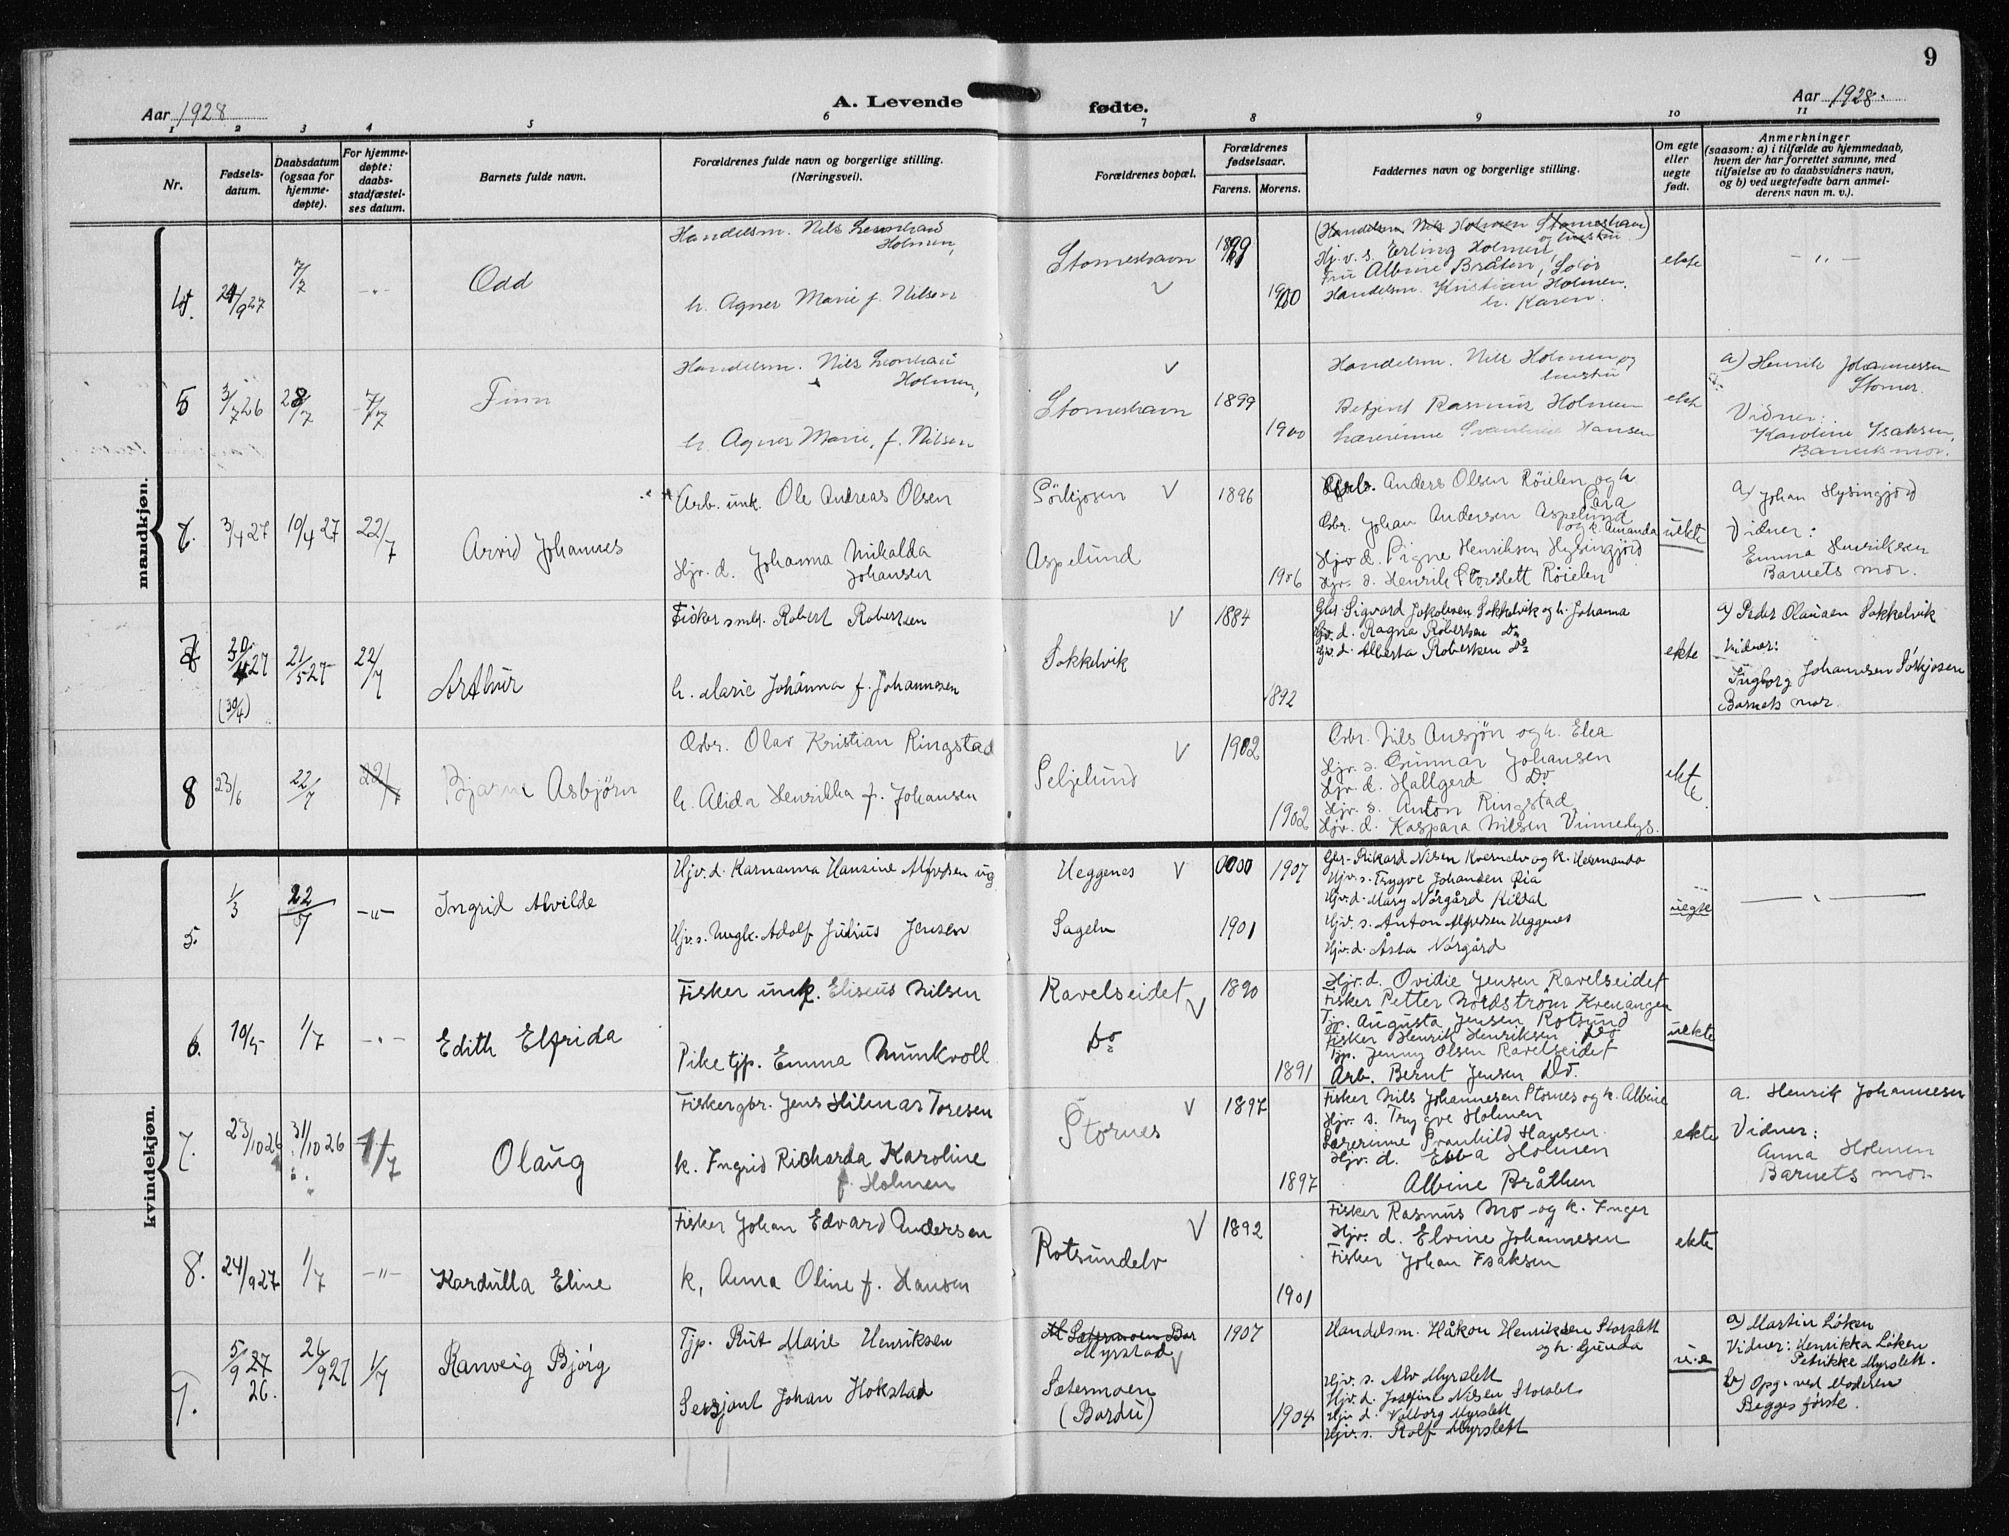 9
Aar 1928
A. Levende
fødte.
Aar 1928.
1 2 3 4 5 6 7 8 9 10 11
Nr.
Fødsels-
datum.
Daabsdatum
(ogsaa for
hjemme-
døpte).
For hjemme-
døpte:
daabs-
stadfæstel-
ses datum.
Barnets fulde navn.
Forældrenes fulde navn og borgerlige stilling.
(Næringsvei).
Forældrenes bopæl.
Forældrenes
fødselsaar.
Farens. Morens.
Faddernes navn og borgerlige stilling.
Om egte
eller
uegte
født.
Anmerkninger
(saasom: a) i tilfælde av hjemmedaab,
hvem der har forrettet samme, med
tilføielse av to daabsvidners navn,
og b) ved uegtefødte barn anmel-
derens navn m. v.).
mandkjøn.
4.
24/9 27
7/7
-"-
Odd
Handelsm. Nils Leonhard
Holmen,
h. Agnes Marie f. Nilsen
Storneshavn
1899
1900
(Handelsm Nils Holmen Storneshavn)
og hustru
Hjv. s. Erling Holmen
Fru Albine Bråten,
Handelsm. Kristian Holmen.
h. Karen.
ekte
- " -
5
3/7 26
28/7
7/7
Finn
Handelsm. Nils Leonhard
Holmen,
h. Agnes Marie, f. Nilsen
Storneshavn
1899
1900
Handelsm. Nils Holmen og
hustru
Betjent Rasmus Holmen
Lærerinne Svanhild Hansen
ekte
a) Henrik Johannessen
Stornes
Vidner:
Karoline Isaksen,
Barnets mor.
6.
3/4 27
10/4 27
22/7
Arvid Johannes
Arb. unk. Ole Andreas Olsen
Hjv. d. Johanna Mikalda
Johansen
Sörkjosen
Aspelund
1896
1906
Anders Olsen Röielen og h
Sara
Gbr. Johan Andersen Aspelund
og k. Amanda
Hjv d. Signe Henriksen Hysingjord
Hjv. s. Henrik Storslett Röielen
uekte
a) Johan Hysingjord
Vidner:
Emma Henriksen
Barnets mor.
7
30/4 27
(30/4)
21/5 27
22/7
Arthur
Fisker smbr. Robert Robertsen
h. Marie Johanna f. Johannesen
Sokkelvik
1884
1892
Gbr. Sigvard Jakobsen Sokkelvik og h. Johanna
Hjv. d. Ragna Robertsen Do
Hjv. d. Alberta Robertsen Do
ekte
a) Peder Olausen Sokkelvik
Vidner:
Ingborg Johannesen Sörkjosen
Barnets mor.
8
23/6
22/7
22/7
Bjarne Asbjörn
Gbr. Olav Kristian Ringstad
h. Alida Henrikka f. Johansen
Seljelund
1902
1902
Gbr. Nils Ansjön og h. Elea
Hjv. s. Gunnar Johansen
Hjv. d. Hallgerd Do
Hjv. s. Anton Ringstad
Hjv. d. Kaspara Nilsen Vinnelys.
ekte.
kvindekjøn.
5.
1/3
22/7
-"-
Ingrid Alvilde
Hjv. d. Karnanna Hansine Alfredsen ug
Hjv. s. Ungk. Adolf Julius Jensen
Heggenes
Sagelv
1907
1901
Gbr. Rikard Nilsen Kvernelv og k. Hermanda
Hjv. s. Trygve Johansen Lia
Hjv. d. Mary Nörgård Hildal
Hjv. s. Anton Alfredsen Heggenes
Hjv. d. Åsta Nörgård
uegte
- " -
6.
10/5
1/7
-"-
Edith Elfrida
Fisker unk. Eliseus Nilsen
Pike tjp. Emma Munkvoll
Ravelseidet
Do
1890
1891
Hjv. d. Ovidie Jensen Ravelseidet
Fisker Petter Nordström Kvenangen
Tjp. Augusta Jensen Rotsund
Fisker Henrik Henriksen Do
Tjp. Jenny Olsen Ravelseidet
Arb. Bernt Jensen Do.
uekte
7.
23/10 26
31/10 26
1/7
Olaug
Fisker gbr. Jens Hilmar Toresen
k. Ingrid Richarda Karoline
f. Holmen
Stornes
1897
1897
Fisker Nils Johannesen Stornes og k. Albine
Hjv. s. Trygve Holmen
Lærerinne Svanhild Hansen
Hjv. d. Ebba Holmen
Albine Bråthen
ekte
a. Henrik Johannesen
Vidner:
Anna Holmen
Barnets mor
8.
24/9 27
1/7
-"-
Kardulla Eline
Fisker Johan Edvard Andersen
k, Anna Oline f. Hansen
Rotsundelv
1892
1901
Fisker Rasmus Mo og k. Inger
Hjv. d. Elvine Johannesen
Fisker Johan Isaksen
ekte
9.
5/9 27
26.
26/9 27
1/7
Ranveig Bjørg
Tjp. Rut Marie Henriksen
Sersjant Johan Hokstad
Sætermoen Bar
Myrstad
Sætermoen
(Bardu)
1907
1904
Handelsm. Håkon Henriksen Storslett
og h. Gunda
Hjv. s. Alv Myrslett
Hjv. d. Josefine Nilsen Storslet
Hjv. d. Valborg Myrslett
Hjv. s. Rolf Myrslett
u.e
a) Martin Löken
Vidner: Henrikka Löken
Petrikke Myrslett.
b) Opg. ved Moderen
Begges förste.